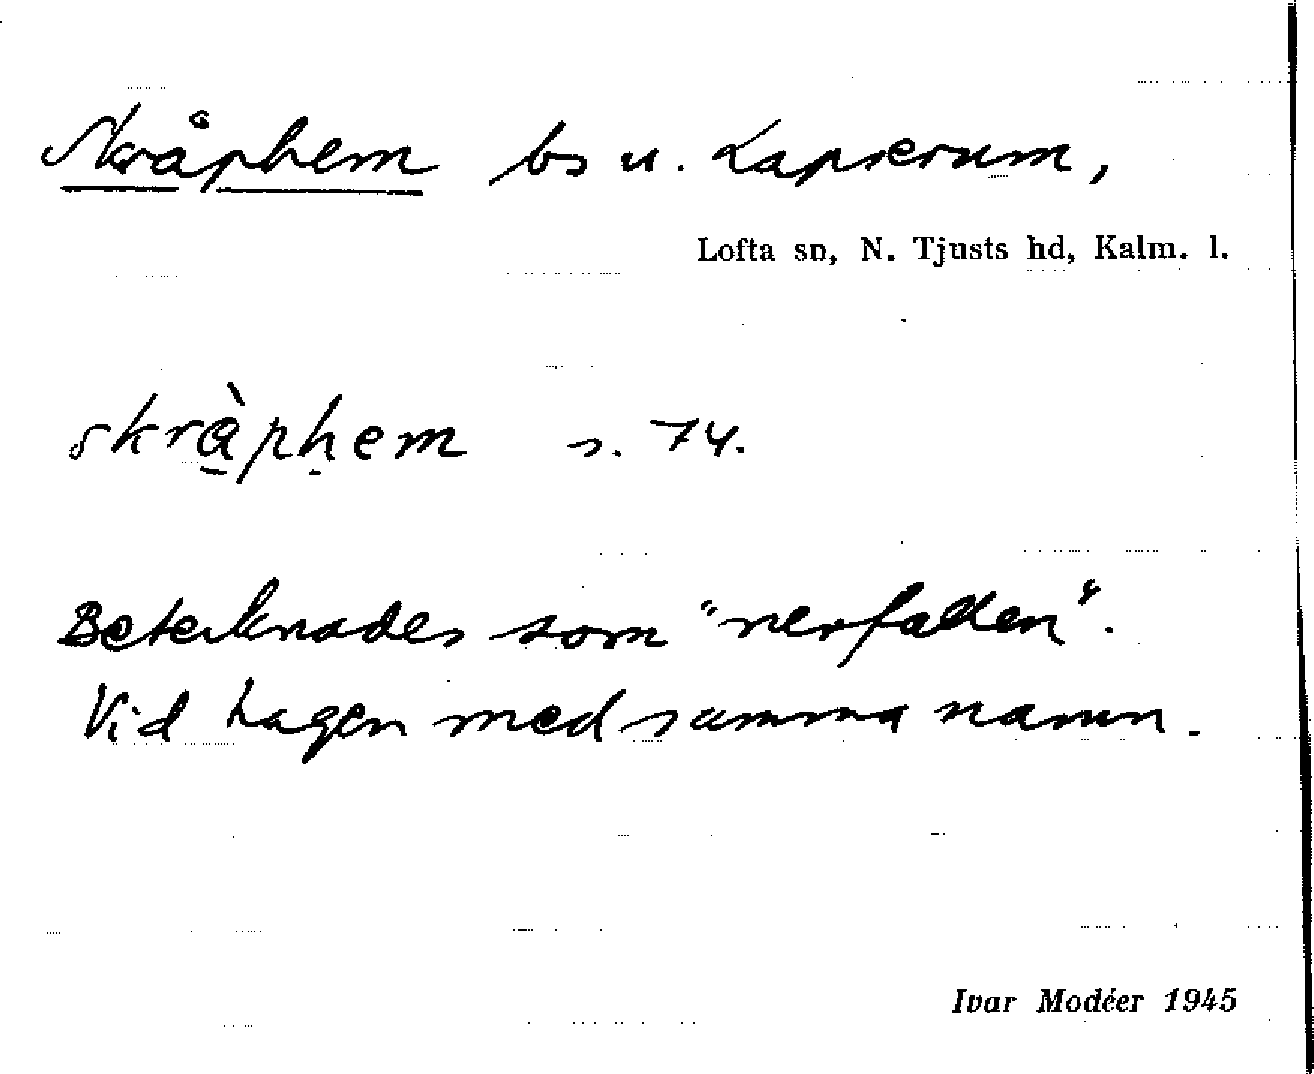 Skråphem bs u. Lapserum,
Lofta sn, N. Tjusts hd, Kalm. l.
skrå̀pḥem s. 74.
Betecknades som "nerfallen".
Vid hagen med samma namn.
Ivar Modéer 1945